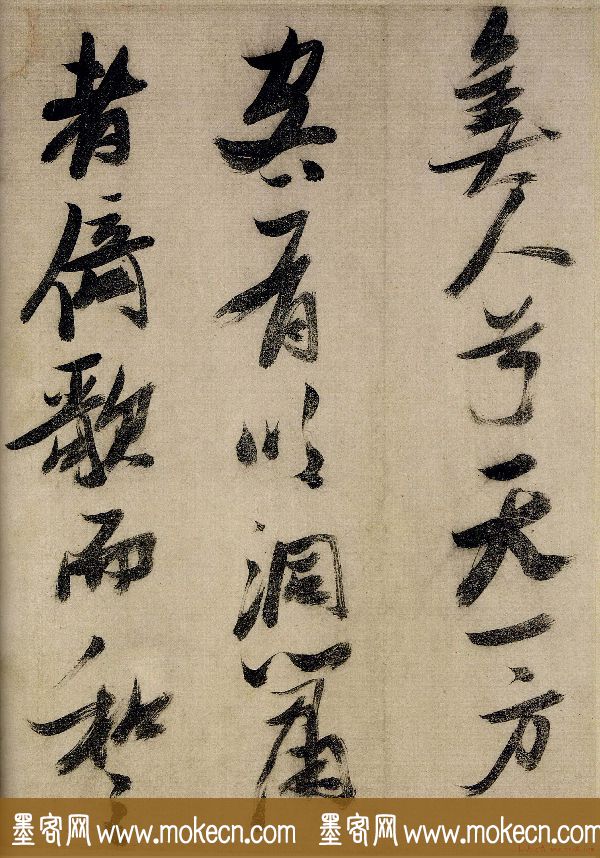 美人兮天一方
客有吹洞簫
者倚歌而和
墨客网 www.mokecn.com 墨客网 www.mokecn.com